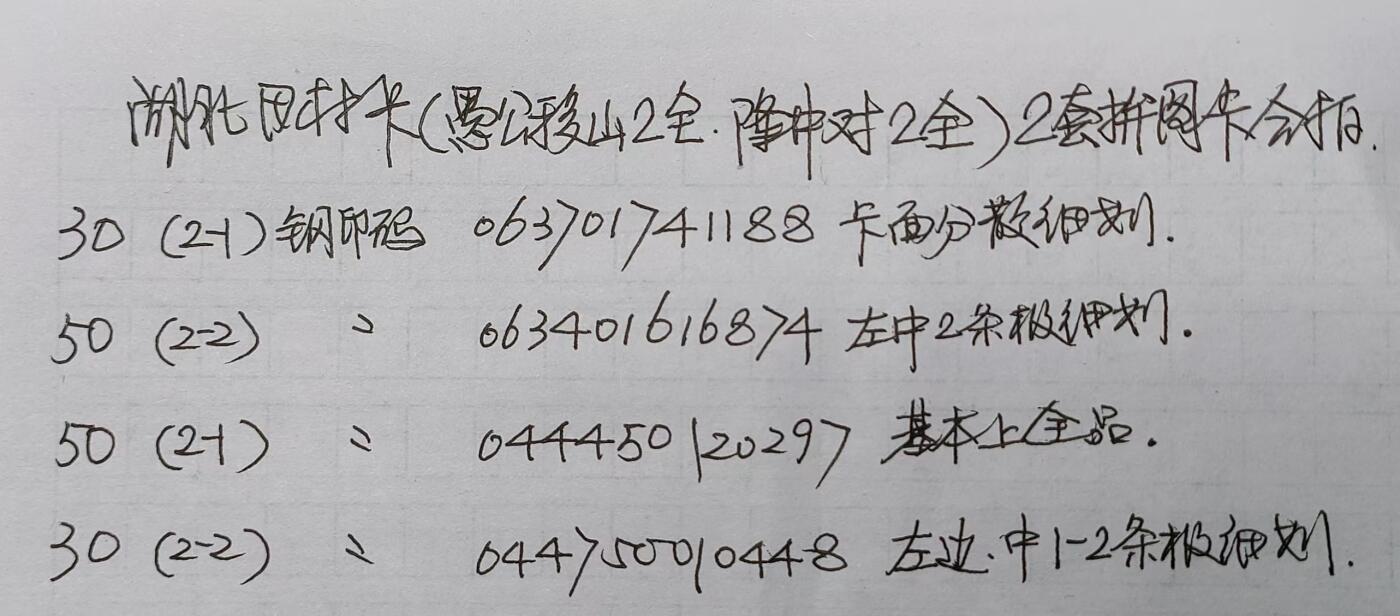 湖北田村卡(愚公移山2全.隆中对2全)2套拼图卡合拍.
30 (2-1)钢印码 063701741188 卡面分散细划.
50 (2-2) 〃 063401616874 左中2条极细划.
50 (2-1) 〃 044450120297 基本上全品.
30 (2-2) 〃 044750010448 左边.中1-2条极细划.